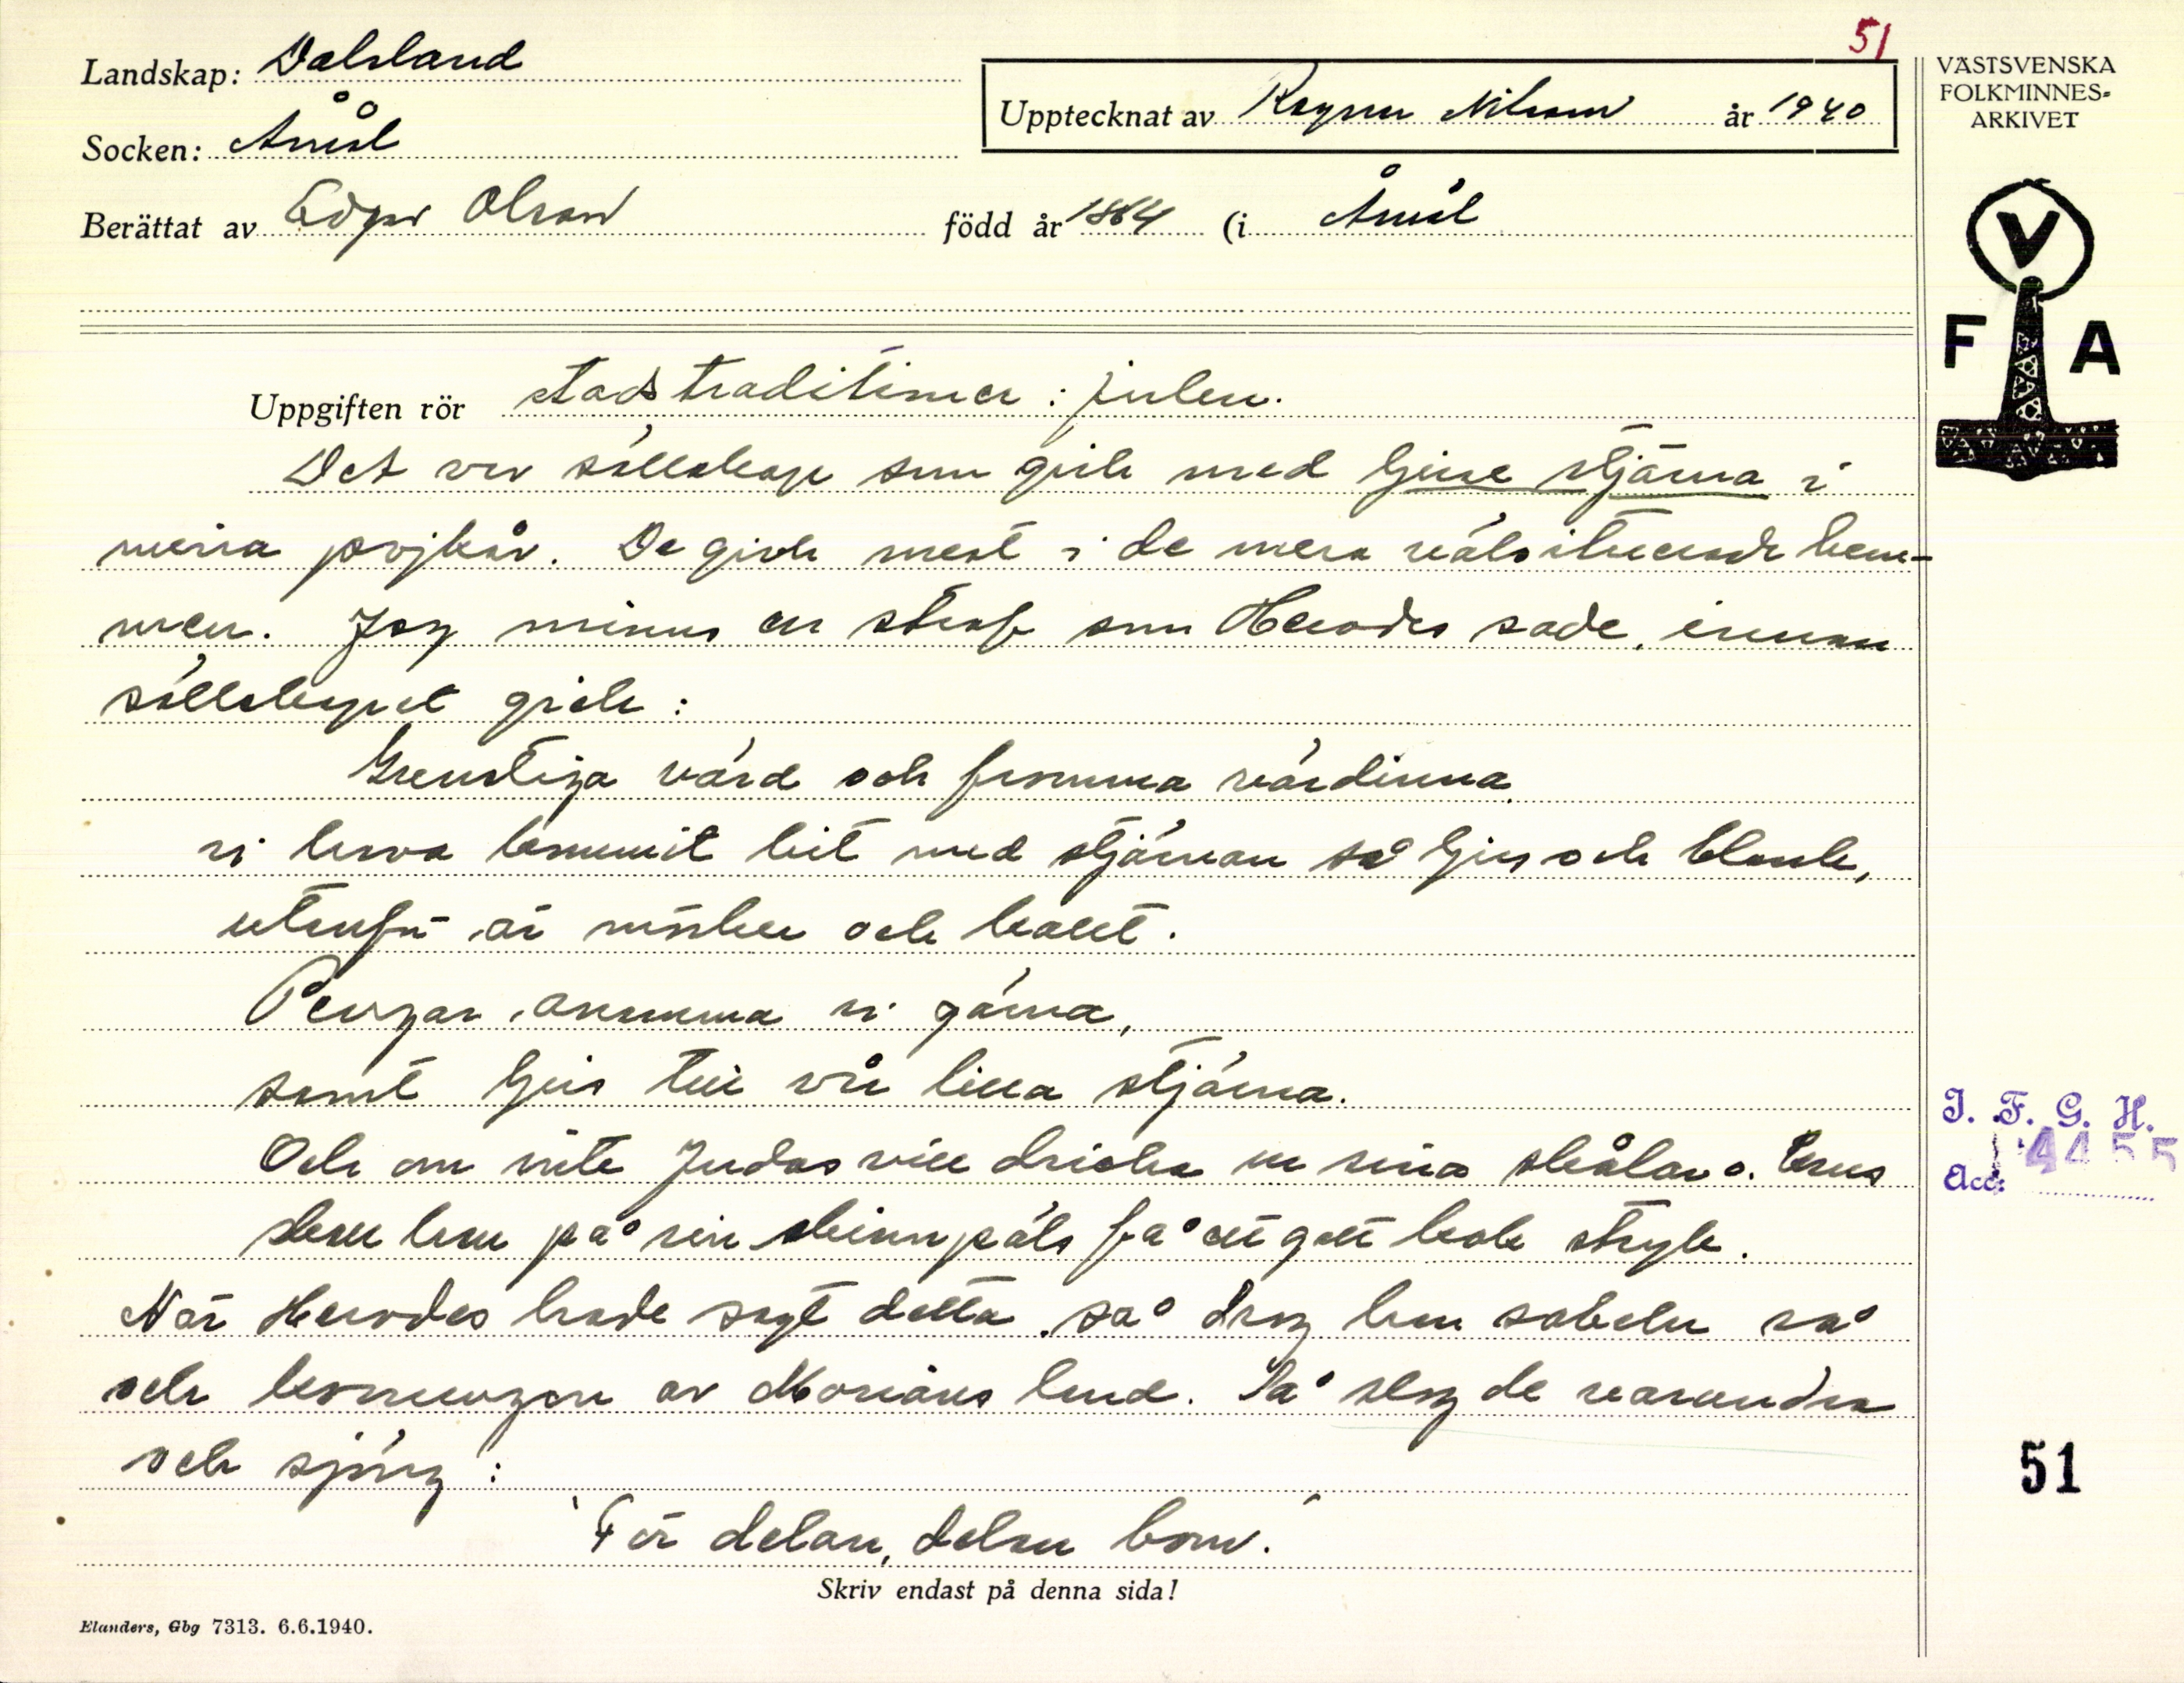 51
Landskap: Dalsland
Upptecknat av Ragnar Nilsson år 1940
VÄSTSVENSKA
FOLKMINNES-
ARKIVET
Socken: Åmål
Berättat av Edgar Olsson född år 1864 (i Åmål
V
F A
Uppgiften rör stadstraditioner: julen.
Det var sällskap som gick med ljus stjärna i
mina pojkår. De gick mest i de mera välsituerade hem-
men. Jag minns en strof som Herodes sade, innan
sällskapet gick:
Gunstiga värd och fromma värdinna
vi hava kommit hit med stjärnan så ljus och blank,
utanför är mörker och kallt.
Pengar anamma vi gärna,
samt ljus till vår lilla stjärna.
Och om inte Judas vill dricka ur sina skålar o.
skall han på sin skinnpäls få ett gott kok stryk.
När Herodes hade sagt detta, så drog han sabeln så
och konungen av Morians land. Så slog de varandra
och sjöng:
"För delan, delan bom."
Skriv endast på denna sida!
Elanders, Gbg 7313. 6.6.1940.
I. F. G. H.
Acc: 4455
51